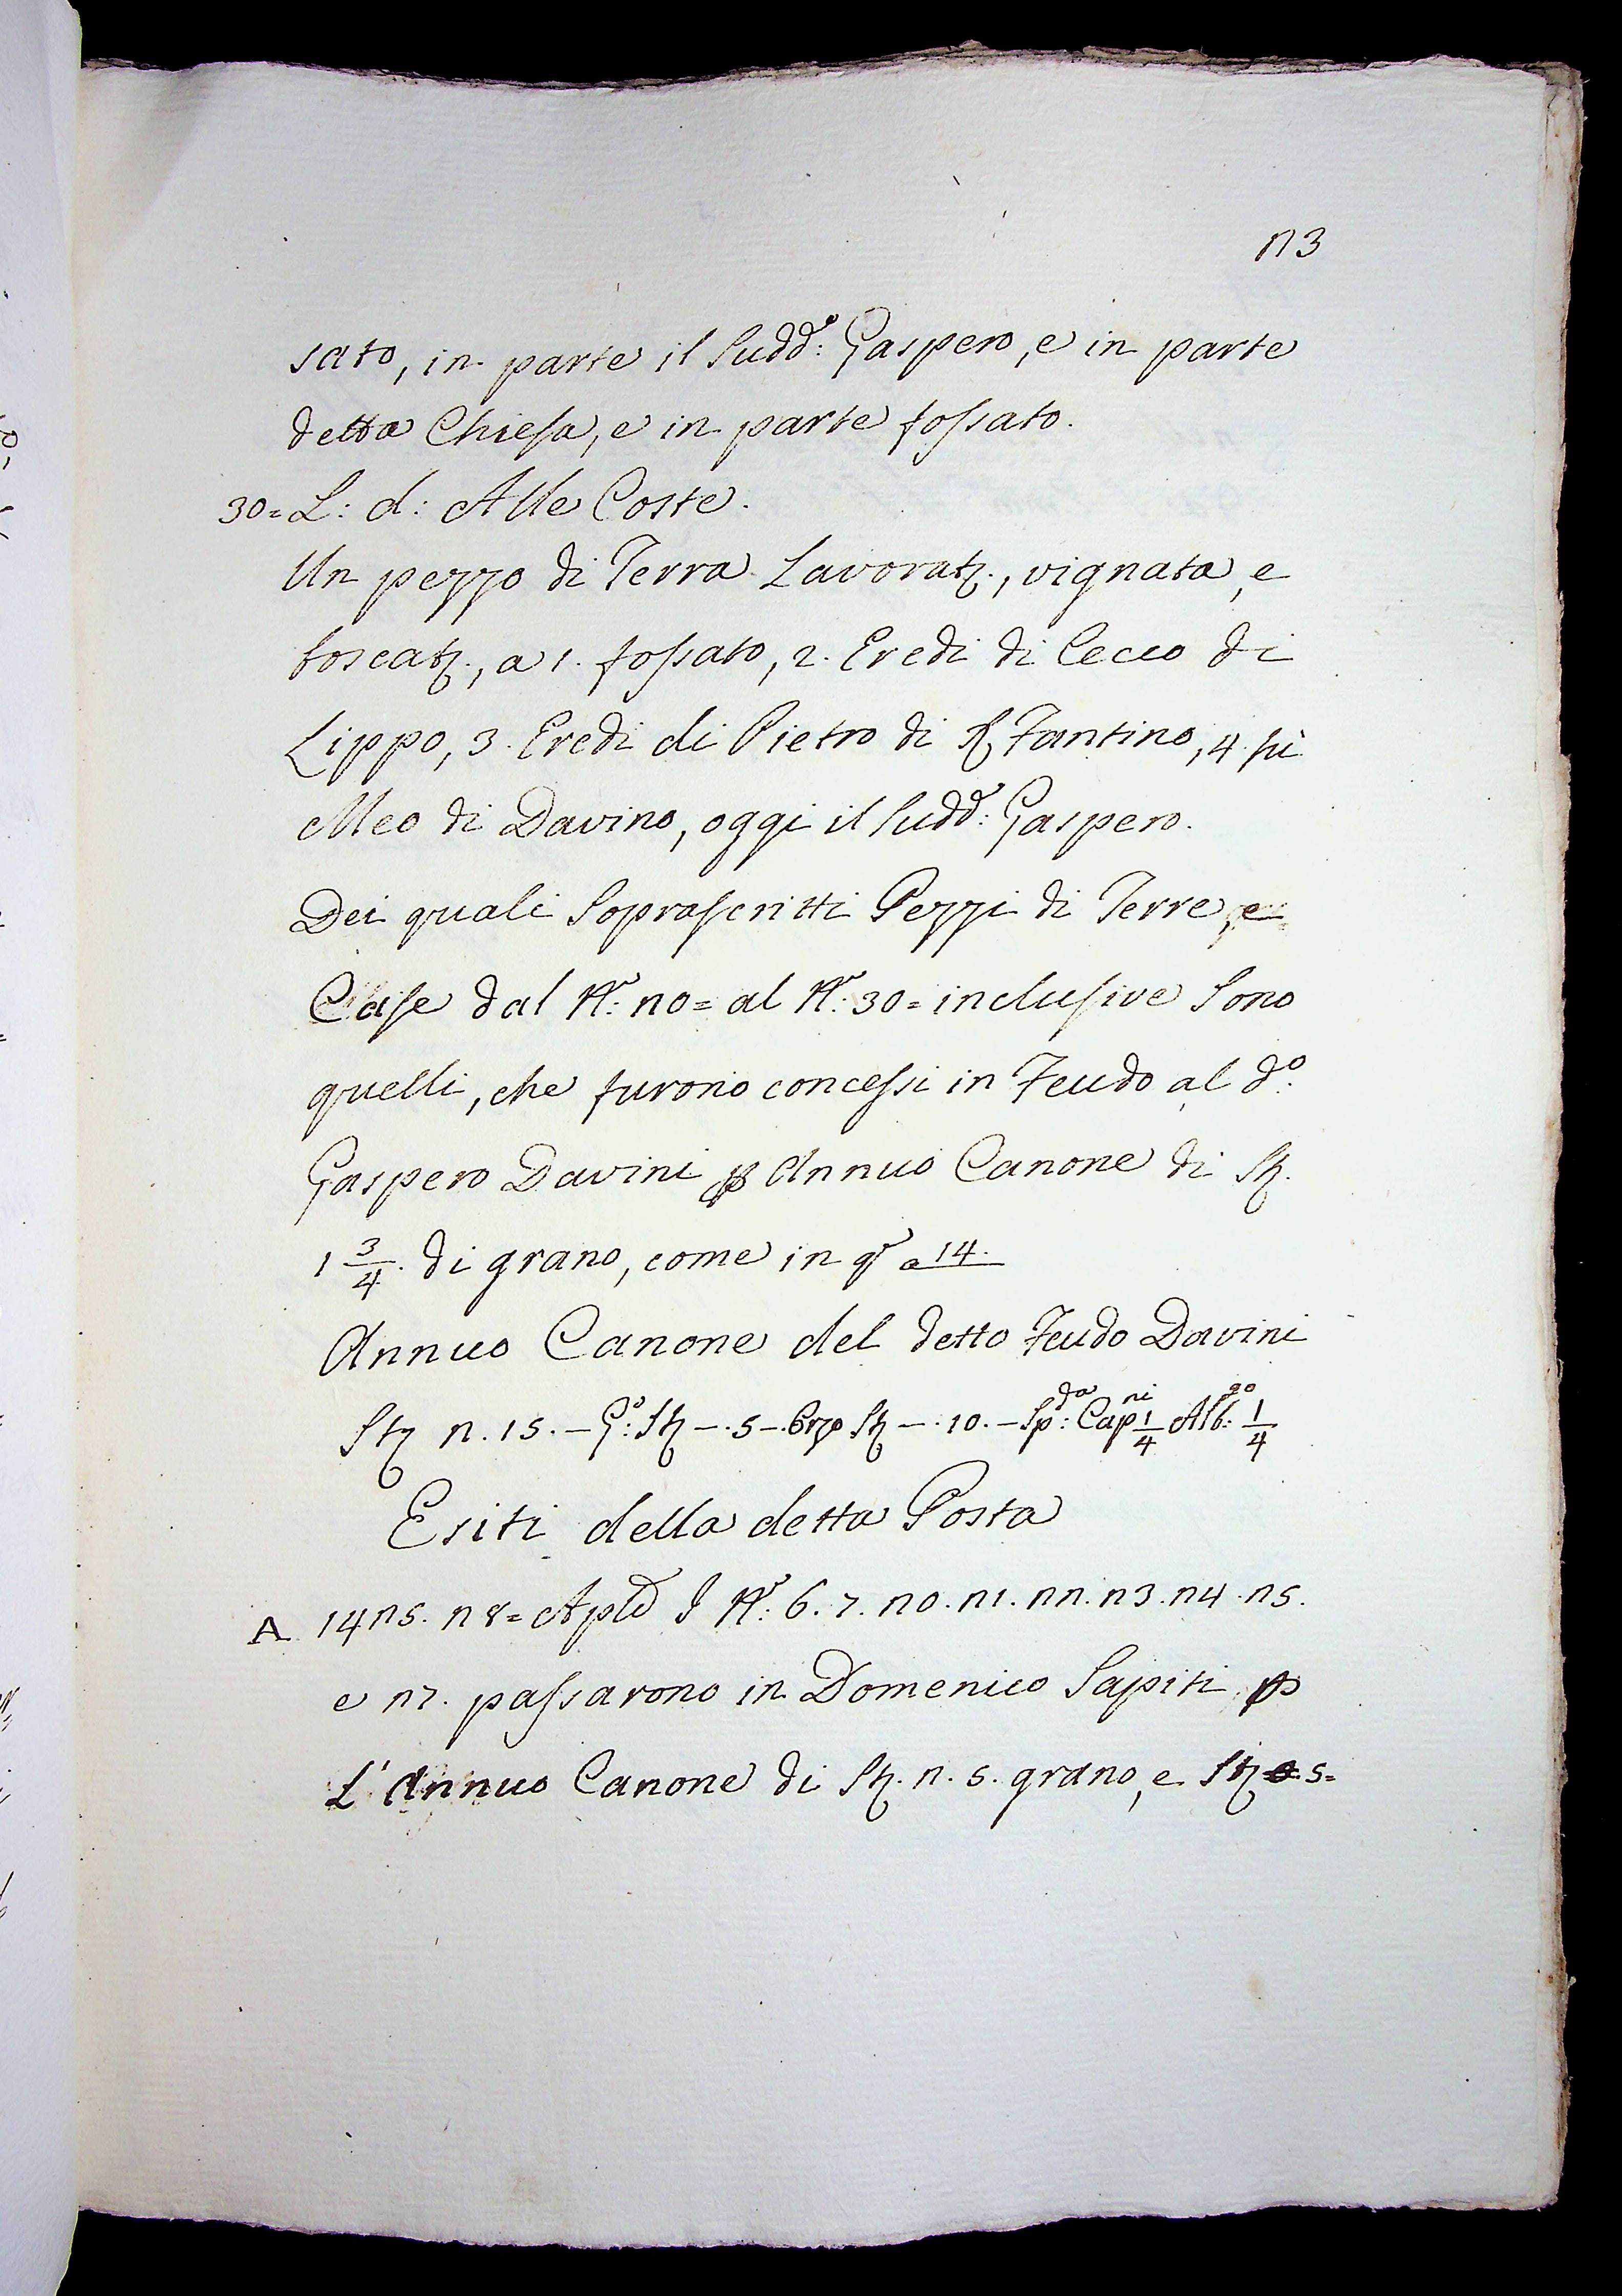 23
sato, in parte il Sudd.º: Gaspero, e in parte
detta Chiesa, e in parte fossato.
30= L: d: Alle Coste.
Un pezzo di Terra Lavoratª., vignata, e
boscatª., a 1. fossato, 2. Eredi di Cecco di
Lippo, 3. Eredi di Pietro di Sr Fantino, 4 fù
Meo di Davino, oggi il Sudd.º: Gaspero.
Dei quali Soprascritti Pezzi di Terre, e
Case dal Nº: 20= al Nº: 30= inclusive Sono
quelli, che furono concessi in Feudo al dº.
Gaspero Davini p Annuo Canone di Stª.
1 3/4. di grano, come in qº a 14.
Annuo Canone del detto Feudo Davini
Stª 2. 15. — Gº: Stª —. 5 —. Orzo Stª —. 10. — Spda: Capni 1/4 Alb:go 1/4
Esiti della detta Posta
A 1425. 28= Aple I Nº: 6. 7. 20. 21. 22. 23. 24. 25.
e 27. passarono in Domenico Sapiti p
L'Annuo Canone di Stª. 2. 5. grano, e Stª 5=